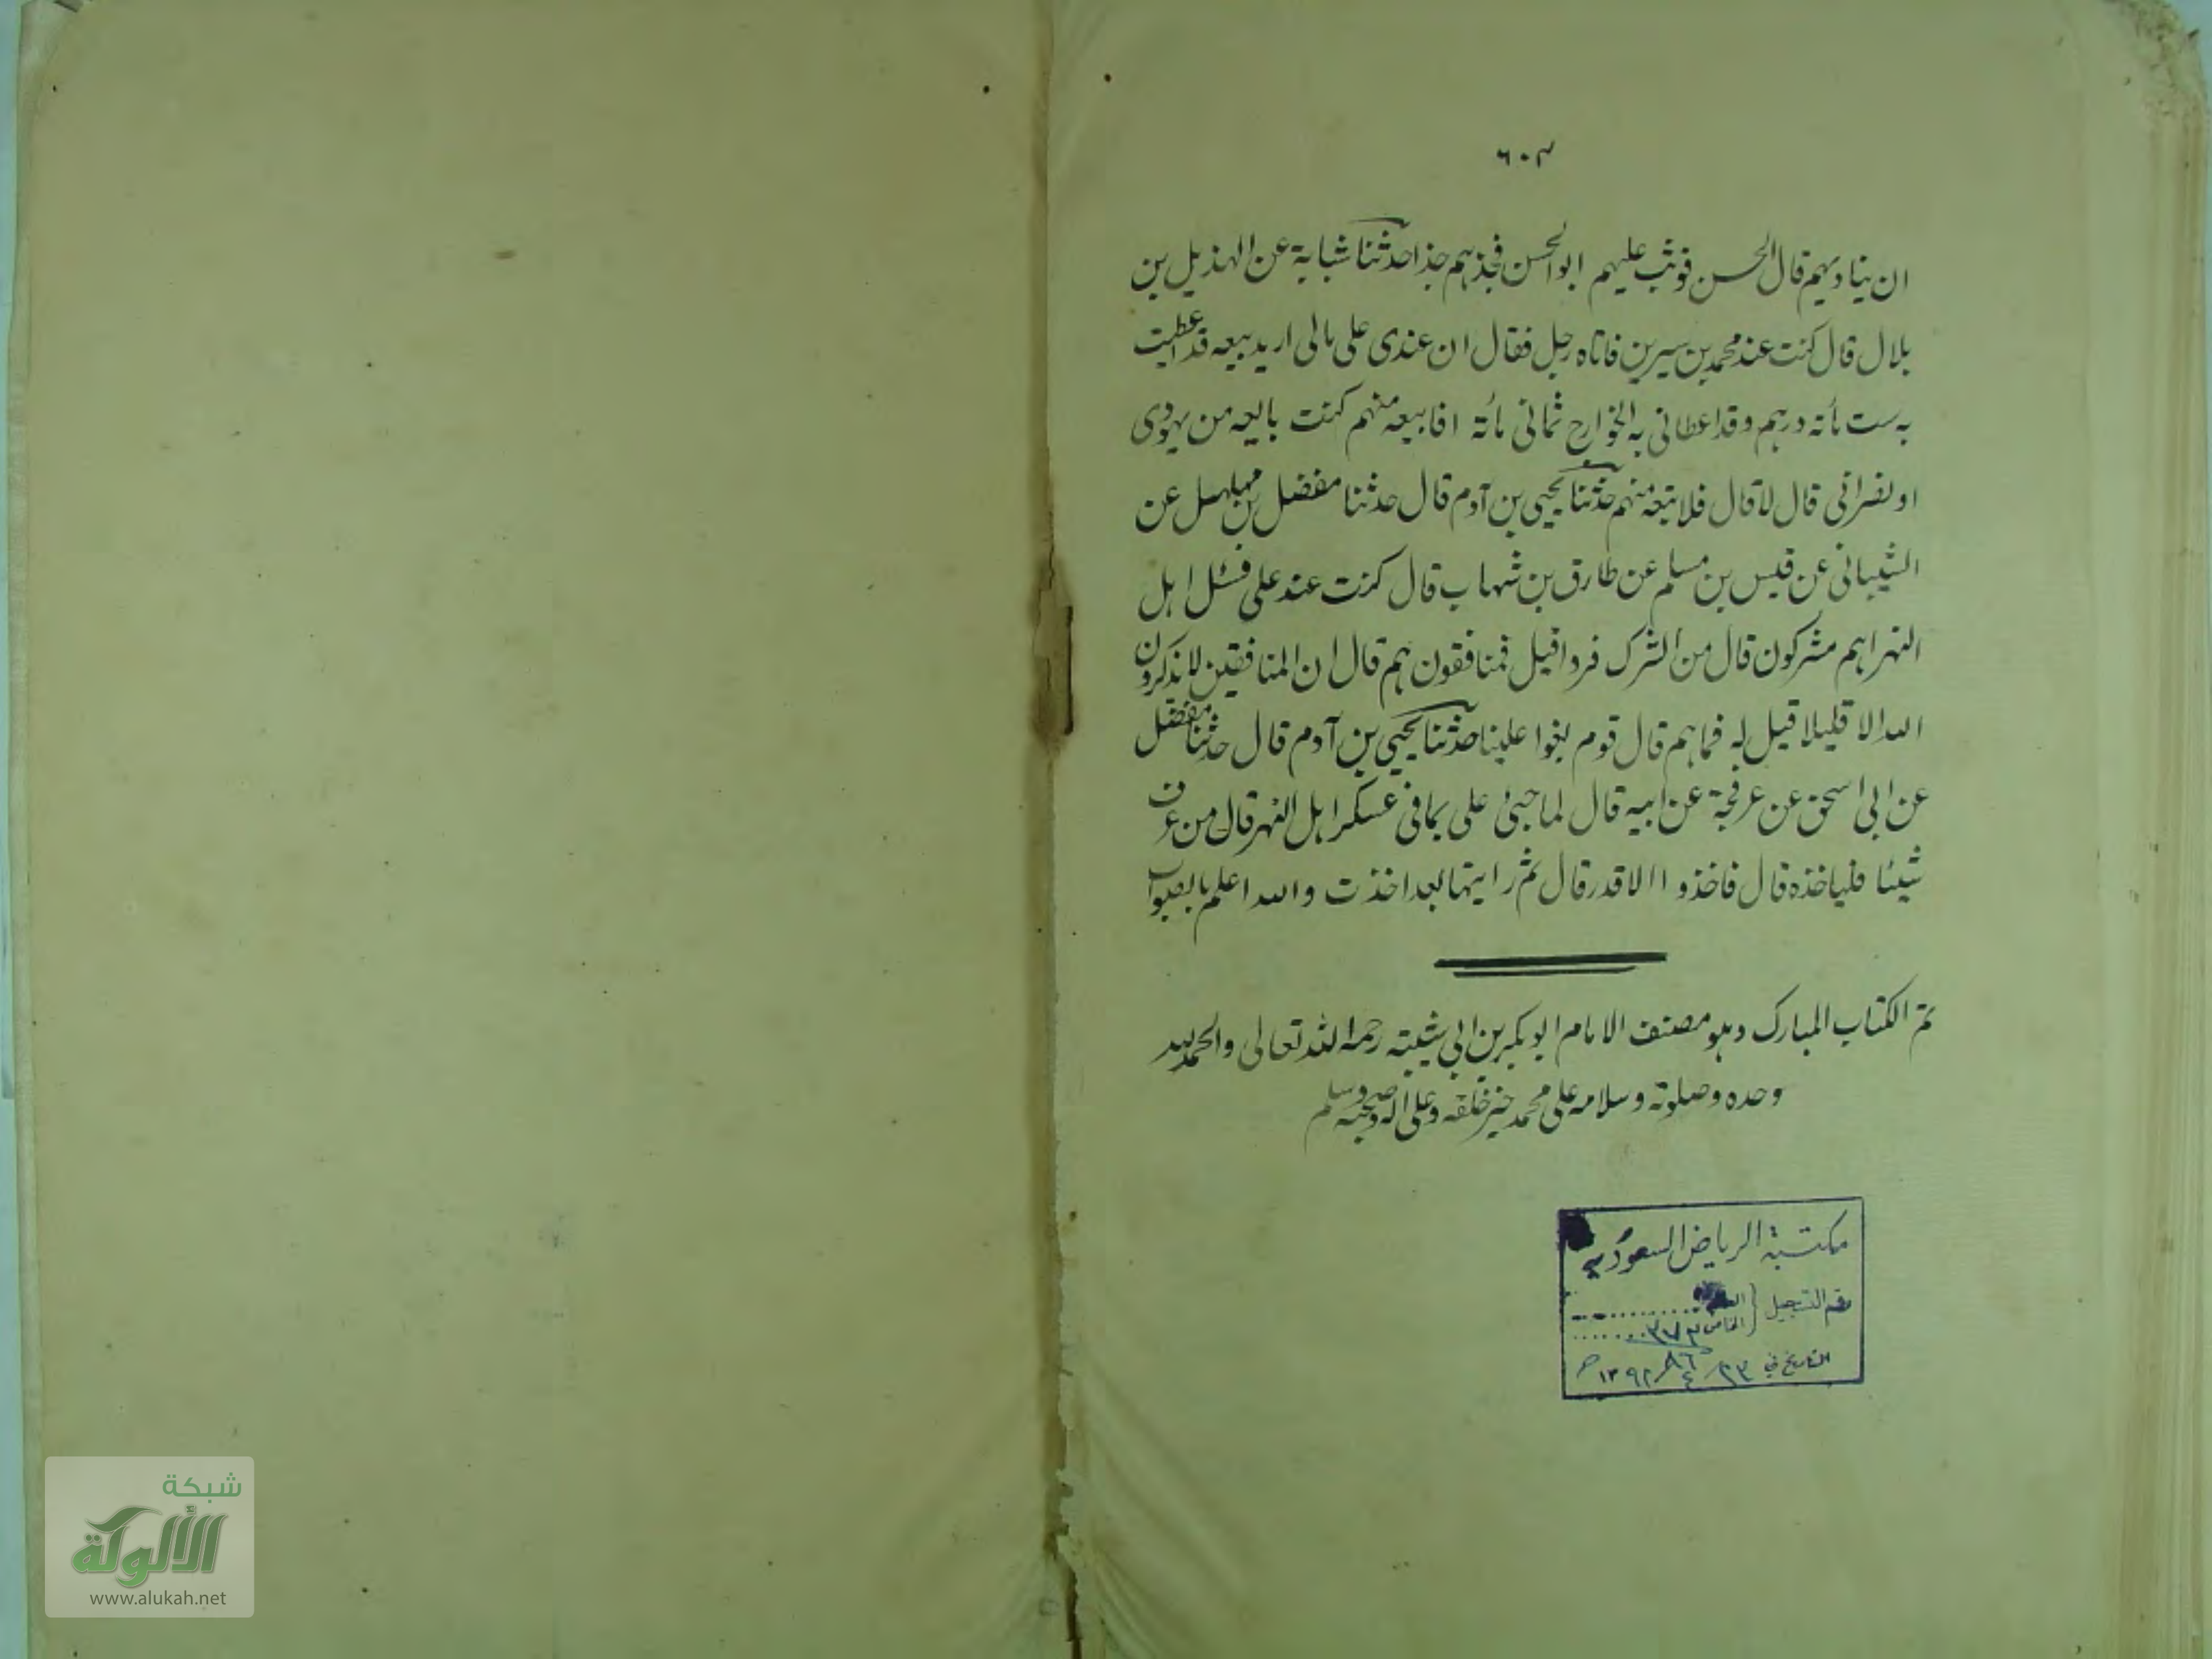 ٦٠٣
ان يناديهم قال الحسن فوثب عليهم ابو الحسن فجذهم جذا حدثنا شبابة عن الهذيل بن
بلال قال كنت عند محمد بن سيرين فاتاه رجل فقال ان عندى على مالى اريد بيعه قد اعطيت
به ست مائة درهم وقد اعطانى به الخوارج ثمانى مائة افابيعه منهم كنت بايعه من يهودى
او نصرانى قال لا قال فلا تبعه منهم حدثنا يحيى بن آدم قال حدثنا مفضل بن مهلهل عن
الشيبانى عن قيس بن مسلم عن طارق بن شهاب قال كنت عند على فسئل اهل
النهر اهم مشركون قال من الشرك فروا قيل فمنافقون هم قال ان المنافقين لا يذكرون
الله الا قليلا قيل له فما هم قال قوم بغوا علينا حدثنا يحيى بن آدم قال حدثنا مفضل
عن ابى اسحق عن عرفجة عن ابيه قال لما جئ على بما فى عسكر اهل النهر قال من عرف
شيئا فلياخذه قال فاخذوا الا قدر قال ثم رايتها بعد اخذت والله اعلم بالصواب
تم الكتاب المبارك وهو مصنف الامام ابو بكر بن ابى شيبة رحمه الله تعالى والحمد لله
وحده وصلوته وسلامه على محمد خير خلقه وعلى اله وصحبه وسلم
مكتبة الرياض السعودية
رقم التسجيل العام
الخاص ٣٧٣
التاريخ في ٢٣ / ١٣٩٢ هـ
شبكة
الألوكة
www.alukah.net